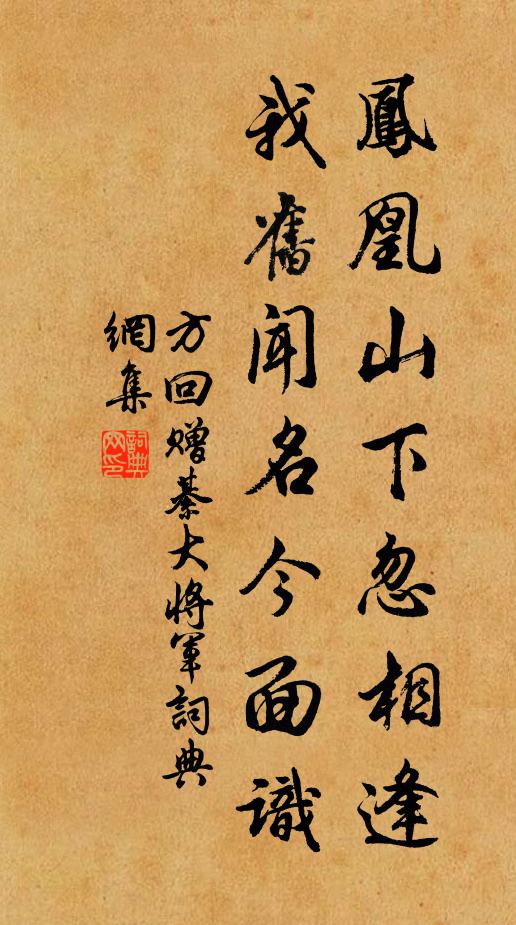 鳳凰山下忽相逢
我舊聞名今面識
方回贈綦大將軍詞典
網集
詞典
网印